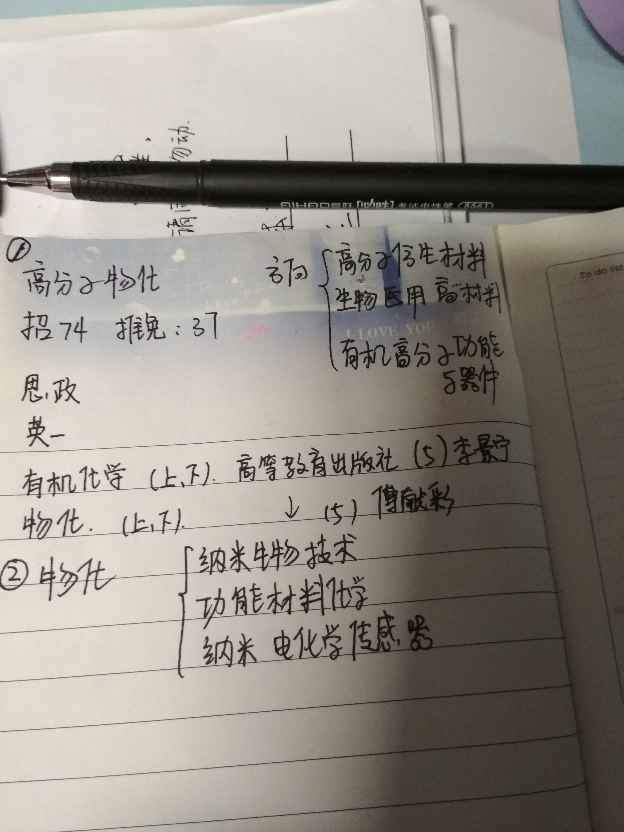 ①
高分子物化 方向 { 高分子仿生材料
招74 推免:37 生物医用高材料
有机高分子功能
与器件
思,政
英一
有机化学 (上,下). 高等教育出版社 (5) 李景宁
物化. (上,下). ↓ (5) 傅献彩
② 物化 { 纳米生物技术
功能材料化学
纳米 电化学传感器
I LOVE YOU